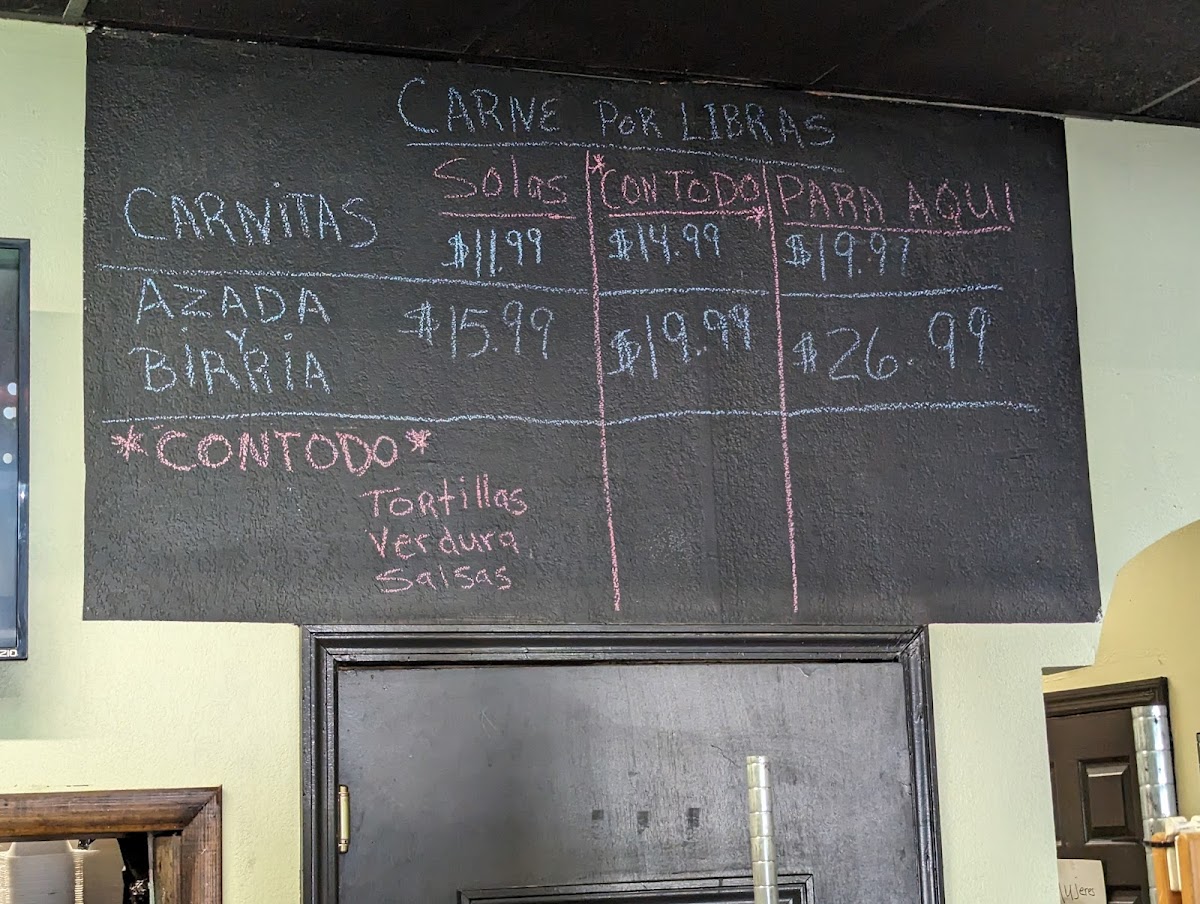 CARNE POR LIBRAS
Solas *CONTODO* PARA AQUI
CARNITAS $11.99 $14.99 $19.99
AZADA
Y
BIRRIA $15.99 $19.99 $26.99
*CONTODO*
Tortillas
Verdura
Salsas
ZIO
ujeres